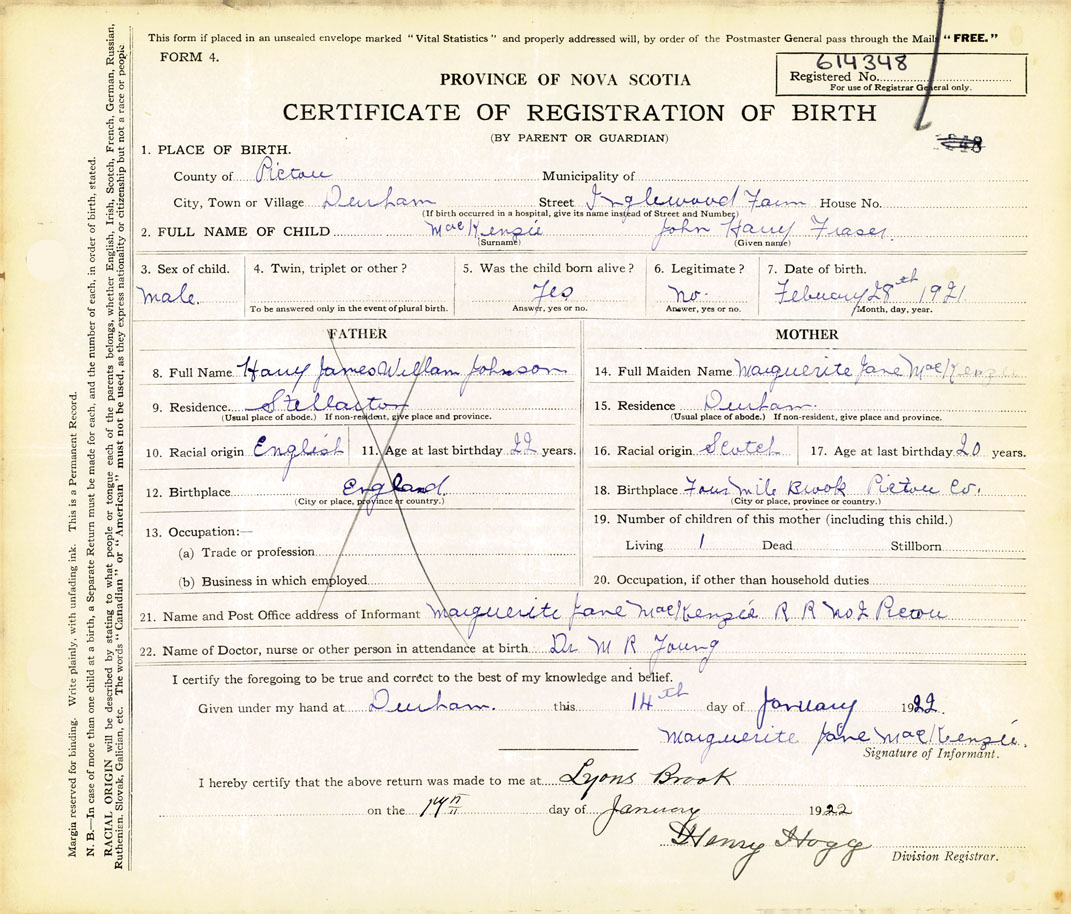 This form if placed in an unsealed envelope marked "Vital Statistics" and properly addressed will, by order of the Postmaster General pass through the Mails "FREE."
FORM 4.
614348
Registered No.
For use of Registrar General only.
PROVINCE OF NOVA SCOTIA
CERTIFICATE OF REGISTRATION OF BIRTH
(BY PARENT OR GUARDIAN)
1. PLACE OF BIRTH.
County of Pictou Municipality of
City, Town or Village Durham Street Inglewood Farm House No.
(If birth occurred in a hospital, give its name instead of Street and Number)
2. FULL NAME OF CHILD MacKenzie John Harry Fraser.
(Surname) (Given name)
3. Sex of child. 4. Twin, triplet or other? 5. Was the child born alive? 6. Legitimate? 7. Date of birth.
Male. Yes No. February 28th 1921
To be answered only in the event of plural birth. Answer, yes or no. Answer, yes or no. Month, day, year.
FATHER MOTHER
8. Full Name Harry James William Johnson 14. Full Maiden Name Marguerite Jane MacKenzie
9. Residence Stellarton 15. Residence Durham.
(Usual place of abode.) If non-resident, give place and province. (Usual place of abode.) If non-resident, give place and province.
10. Racial origin English 11. Age at last birthday 22 years. 16. Racial origin Scotch 17. Age at last birthday 20 years.
12. Birthplace England. 18. Birthplace Four Mile Brook Pictou Co.
(City or place, province or country.) (City or place, province or country.)
13. Occupation:— 19. Number of children of this mother (including this child.)
(a) Trade or profession Living 1 Dead Stillborn
(b) Business in which employed 20. Occupation, if other than household duties
21. Name and Post Office address of Informant Marguerite Jane MacKenzie R R No 2 Pictou
22. Name of Doctor, nurse or other person in attendance at birth Dr M R Young
I certify the foregoing to be true and correct to the best of my knowledge and belief.
Given under my hand at Durham. this 14th day of January 1922.
Marguerite Jane MacKenzie.
Signature of Informant.
I hereby certify that the above return was made to me at Lyons Brook
on the day of January 1922
Henry Hogg
Division Registrar.
Margin reserved for binding. Write plainly, with unfading ink. This is a Permanent Record.
N. B.—In case of more than one child at a birth, a Separate Return must be made for each, and the number of each, in order of birth, stated.
RACIAL ORIGIN will be described by stating to what people or tongue each of the parents belongs, whether English, Irish, Scotch, French, German, Russian,
Ruthenian, Slovak, Galician, etc. The words "Canadian" or "American" must not be used, as they express nationality or citizenship but not a race or people